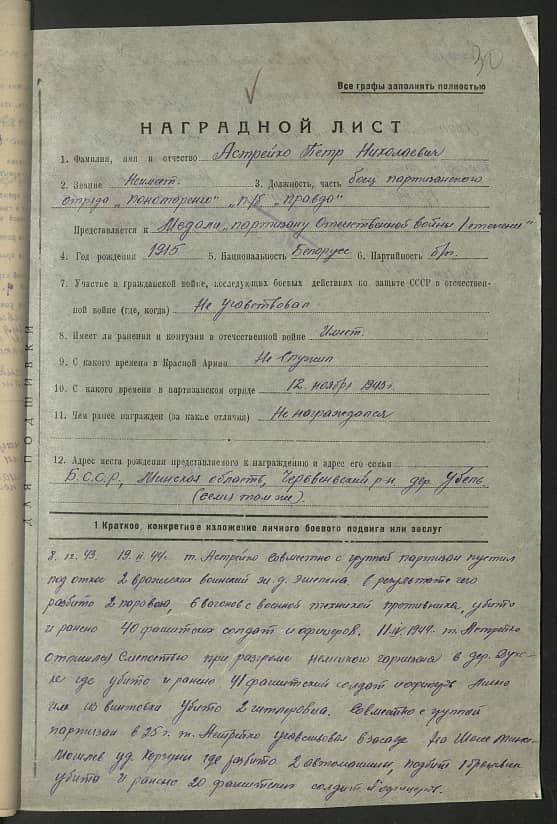 30
Все графы заполнять полностью
НАГРАДНОЙ ЛИСТ
1. Фамилия, имя и отчество Астрейко Петр Николаевич
2. Звание Неимеет. 3. Должность, часть боец партизанского
отряда „Понаморенко" „п/б „Правда"
Представляется к Медали „партизану Отечественной войны I степени"
4. Год рождения 1915 5. Национальность Белорусс 6. Партийность б/п.
7. Участие в гражданской войне, последующих боевых действиях по защите СССР и отечествен-
ной войне (где, когда) Не участвовал
8. Имеет ли ранения и контузии в отечественной войне Имеет.
9. С какого времени в Красной Армии Не Служил
10. С какого времени в партизанском отряде 12 ноября 1943 г.
11. Чем ранее награжден (за какие отличия) Не награждался
12. Адрес места рождения представляемого к награждению и адрес его семьи
Б.С.С.Р, Минская область, Червенский р-н дер. Убель
(семья там же).
ДЛЯ ПОДШИВКИ
1. Краткое, конкретное изложение личного боевого подвига или заслуг
43. 19 44 г. т. Астрейко Совместно с группой партизан пустил
под откос 2 вражеских воинских ж.д. эшелона в результате чего
разбито 2 паровоза, 6 вагонов с военной техникой противника, убито
и ранено 40 фашистских солдат и офицеров. 1944 г. т. Астрейко
отличился Смелостью при разгроме немецкого гарнизона в дер.
где убито и ранено 41 фашистский солдат и офицер. Лично
из винтовки убито 2 гитлеровца. Совместно с группой
партизан в 25 г. т. Астрейко участвовал в засаде на Шоссе Минск
Могилев у д. где разбито 2 автомашины, подбит 1
убито и ранено 20 фашистских солдат и офицеров.